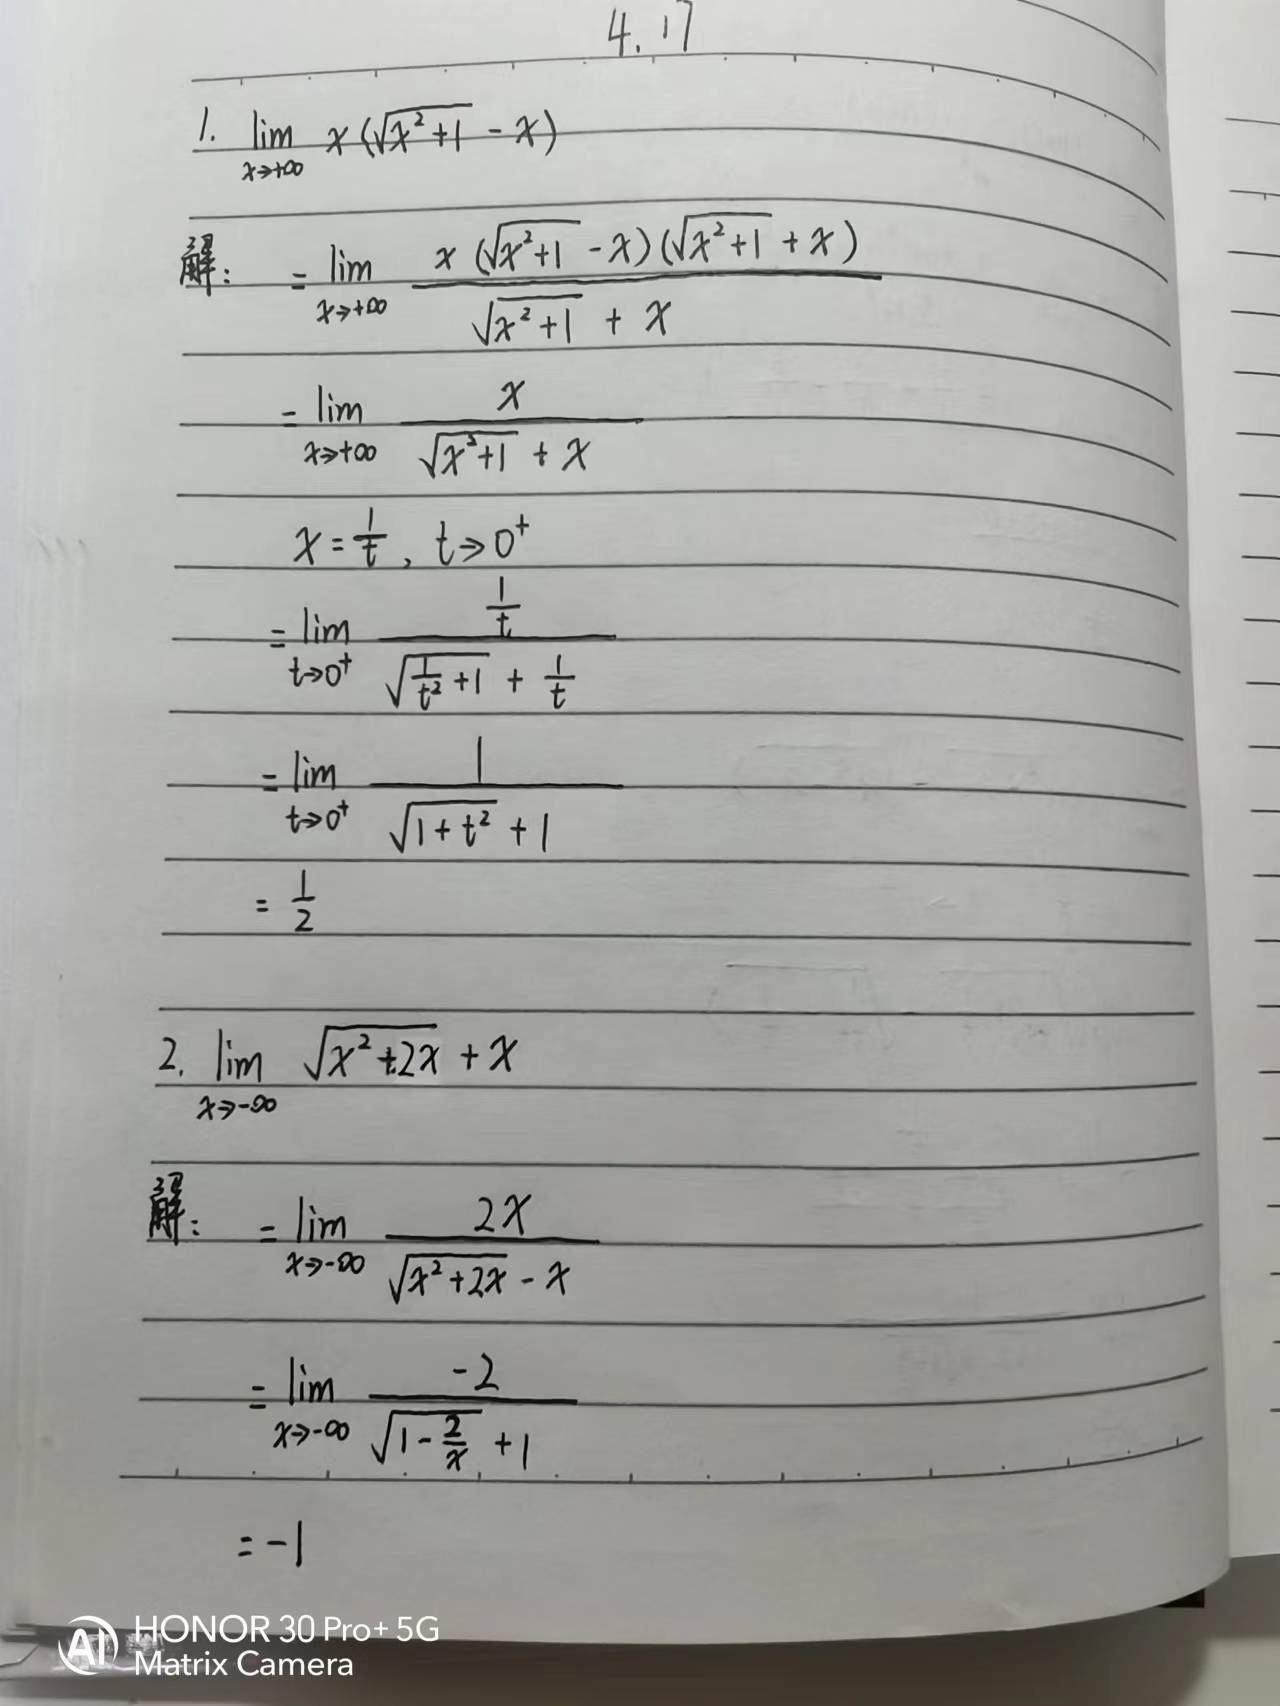 4.17
1. lim x→+∞ x(√(x²+1) - x)
解: = lim x→+∞ x(√(x²+1) - x)(√(x²+1) + x) / (√(x²+1) + x)
= lim x→+∞ x / (√(x²+1) + x)
x = 1/t, t→0⁺
= lim t→0⁺ (1/t) / (√(1/t² + 1) + 1/t)
= lim t→0⁺ 1 / (√(1+t²) + 1)
= 1/2
2. lim x→-∞ √(x²+2x) + x
解: = lim x→-∞ 2x / (√(x²+2x) - x)
= lim x→-∞ -2 / (√(1 - 2/x) + 1)
= -1
AI HONOR 30 Pro+ 5G
Matrix Camera